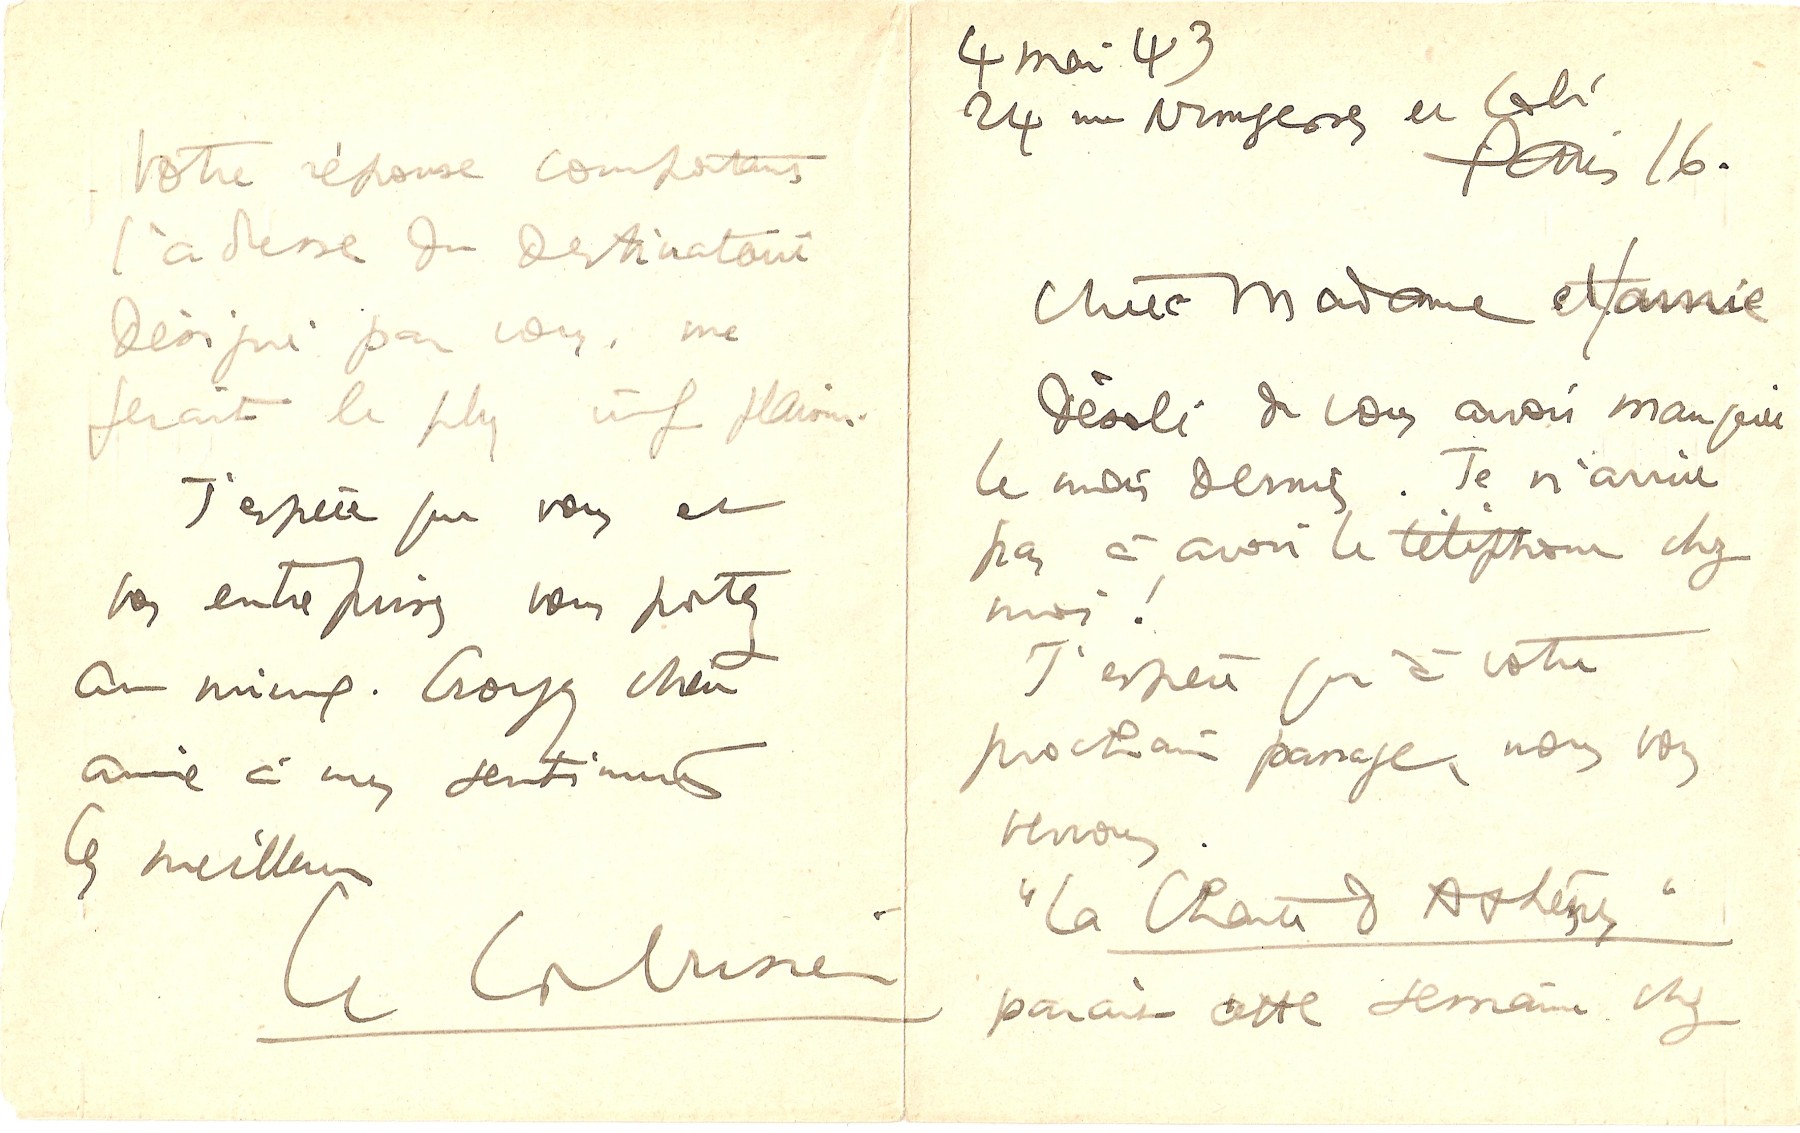 4 mai 43
24 rue Nungesser et Coli
Paris 16.
Chère Madame et amie
Désolé de vous avoir manquée
le mois dernier. Je n'arrive
pas à avoir le téléphone chez
moi !
J'espère qu'à votre
prochain passage, nous vous
verrons.
"La Charte d'Athènes"
parait cette semaine chez
Votre réponse comportant
l'adresse du destinataire
désigné par vous, me
ferait le plus vif plaisir.
J'espère que vous et
vos entreprises vous portez
au mieux. Croyez chère
amie à mes sentiments
les meilleurs
Le Corbusier